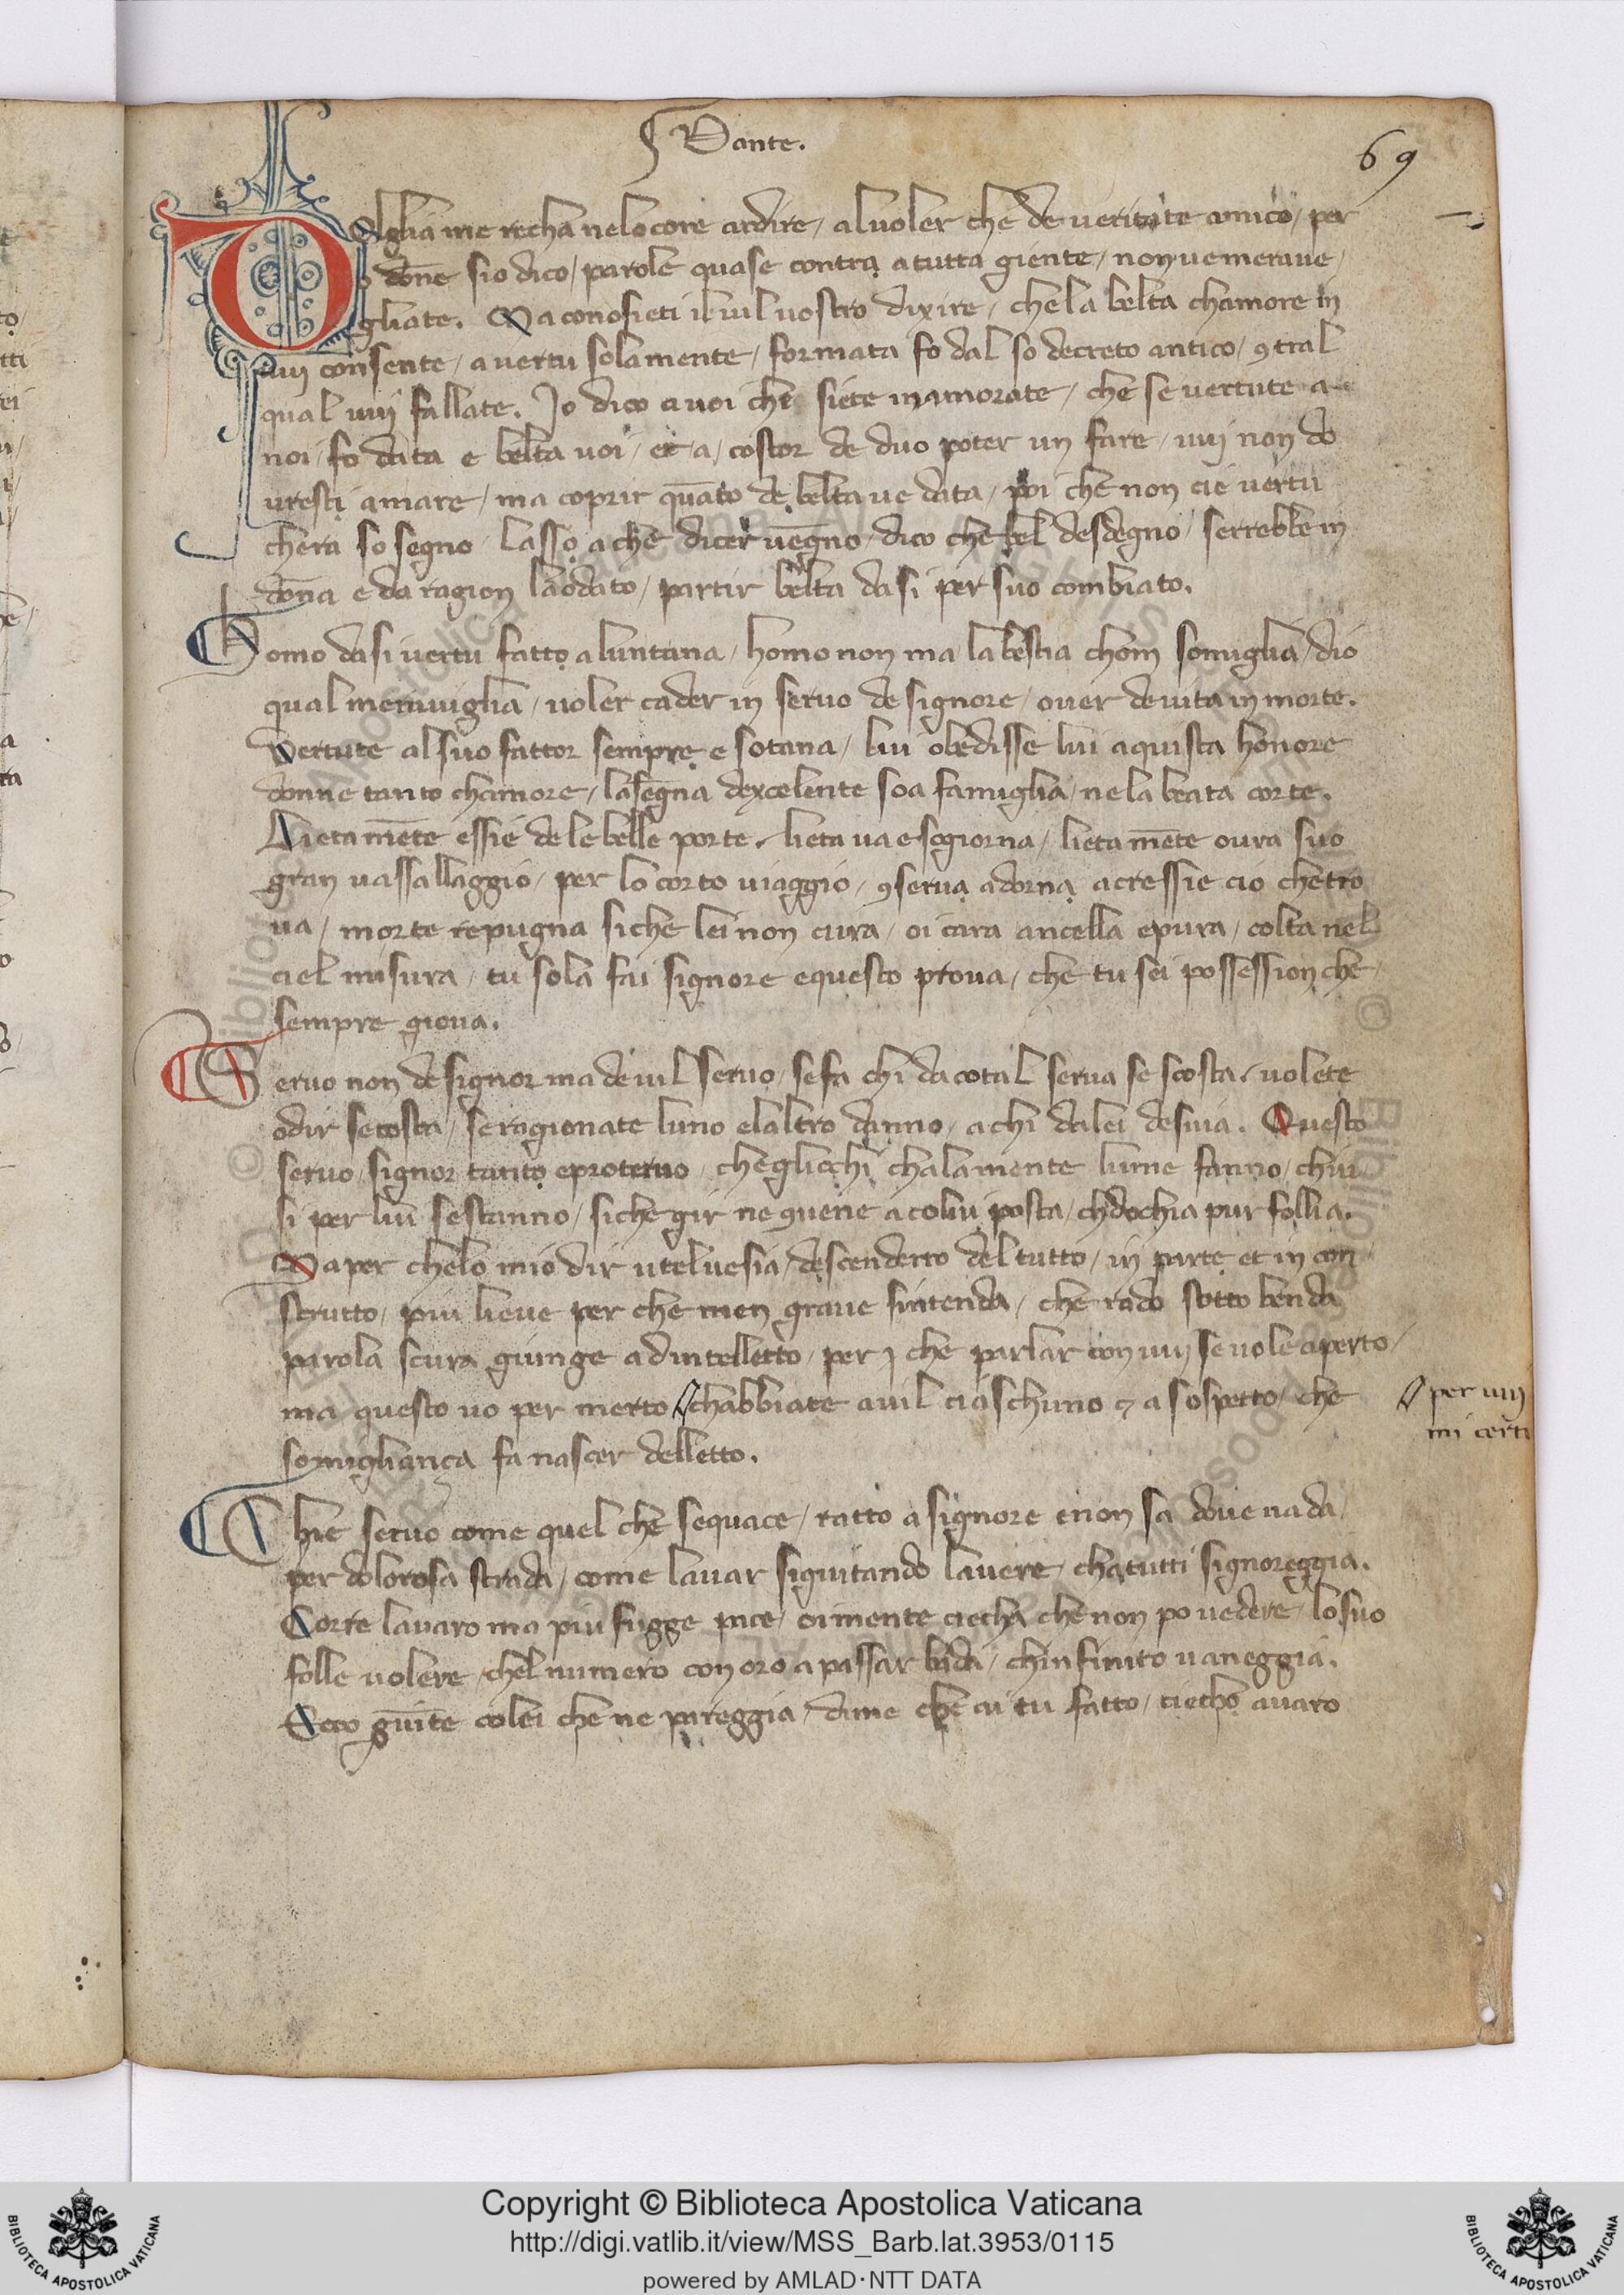 Dante.
69
Doglia me recha nelo core ardire / al voler che de veritate amico / per
o don̄e sio dico / parole quase contra a tutta giente / non ve merave /
gliate. Ma conosieti il vil vostro dixire / che la belta chamore in
vuj consente / a vertu solamente / formata fo dal so decreto antico / 9tral
qual vuj fallate. Io dico a voi che siete inamorate / che se vertute a
noi fo data e belta voi / et a costor de duo poter un fare / vuj non do
vresti amare / ma coprir quāto de belta ve data / poi che non cie vertu
chera so segno / lasso a che dicer vēgno / dico che bel desdegno / serrebbe in
don̄a e da ragion laodato / partir belta da si per suo combiato.
homo da si vertu fatto a luntana / homo non ma la bestia chom somiglia / dio
qual meraviglia / voler cader in servo de signore / over de vita in morte.
Vertute al suo fattor sempre e sotana / lui obedisse lui aquista honore
donne tanto chamore / la segna dexcelente soa famiglia / nela beata corte.
Lieta mēte essie de le belle porte. lieta va e sogiorna / lieta mēte ovra suo
gran vassallaggio / per lo corto viaggio / 9serva adorna acressie cio che tro
va / morte repugna si che lei non cura / oi cara ancella e pura / colta nel
ciel misura / tu sola fai signore e questo prova / che tu sei possession che
sempre giova.
Servo non de signor ma de vil servo / se fa chi da cotal serva se scosta / volete
odir se costa / se ragionate luno elaltro danno / a chi da lei desvia. Questo
servo signor tanto e protervo / che gliecchi chala mente lume fanno / chiu
si per lui se stanno / si che gir ne 9vene a colui posta / chadochia pur follia.
Ma per che lo mio dir utel ve sia / descenderro del tutto / in parte et in con
strutto / piu lieve per che men grave sintenda / che rado sotto benda
parola scura giunge ad intelletto / per che parlar con vuj se vole aperto /
ma questo vo per merto / chabbiate a vil ciaschuno & a sospetto / che
per vuj
mi certo
somigliança fa nascer delletto.
Chie servo come quel che sequace / ratto a signore e non sa dove vada /
per dolorosa strada / come lavar siguitando lavere / cha tutti signoreggia.
Corre lavaro ma piu fugge pace / oi mente ciecha che non po vedere / lo suo
folle volere / chel numero con oro a passar bada / chinfinito vaneggia.
Ecco giūte colei che ne pareggia / dime che ai tu fatto / ciecho avaro
Copyright © Biblioteca Apostolica Vaticana
http://digi.vatlib.it/view/MSS_Barb.lat.3953/0115
powered by AMLAD·NTT DATA
BIBLIOTECA APOSTOLICA VATICANA
BIBLIOTECA APOSTOLICA VATICANA